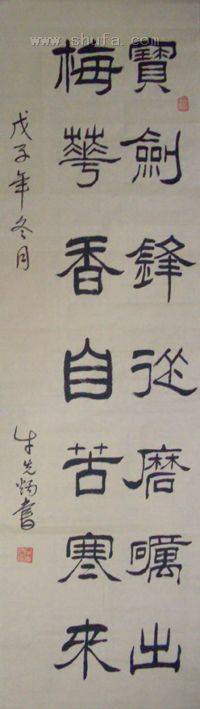 寶劍鋒從磨礪出
梅華香自苦寒來
戊子年冬月
牛先炀書
www.shufa.com